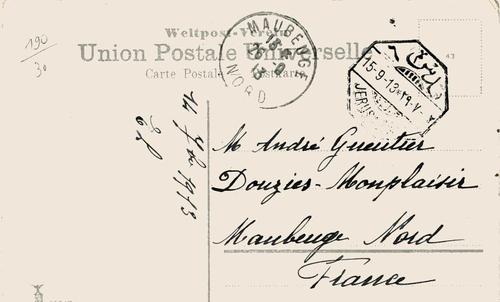 190
30
Weltpost-Verein
Union Postale Universelle
Carte Postale Postkarte
MAUBEUGE
NORD
15-9-13
JERUS
1913
M André Gueutier
Douzies-Monplaisir
Maubeuge Nord
France